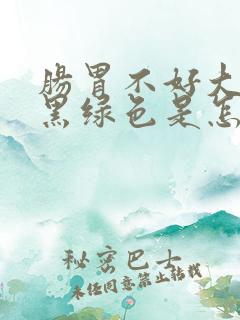 肠胃不好大
黑绿色是怎
秘密巴士
未经同意禁止转载